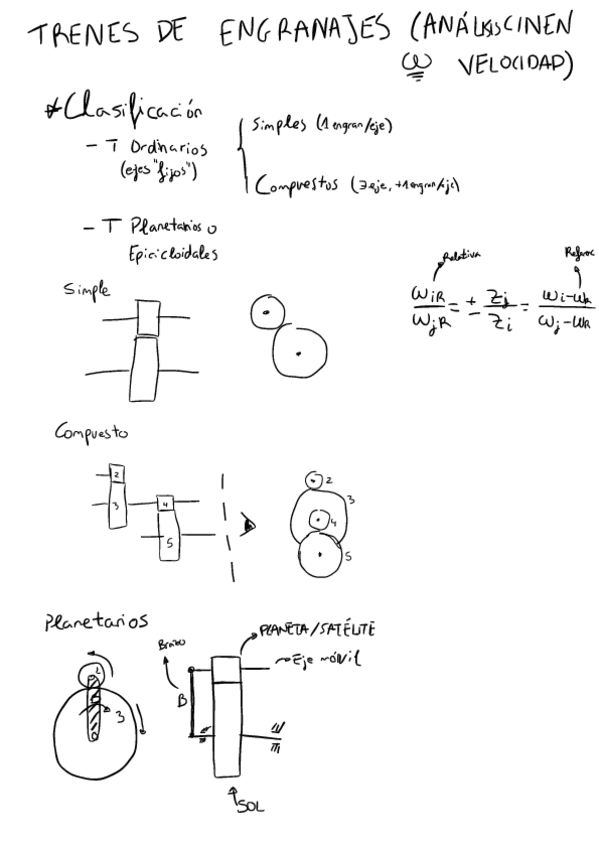 TRENES DE ENGRANAJES (ANÁLISIS CINEM
ω VELOCIDAD)
*Clasificación
- T Ordinarios
(ejes "fijos")
Simples (1 engran/eje)
Compuestos (∃ eje, +1 engran/eje)
- T Planetarios o
Epicicloidales
Relativa
ωiR/ωjR = ± Zj/Zi = ωi-ωR/ωj-ωR
Simple
Compuesto
2
3
4
5
2
3
4
5
Planetarios
2
3
Brazo
B
PLANETA/SATÉLITE
Eje móvil
SOL